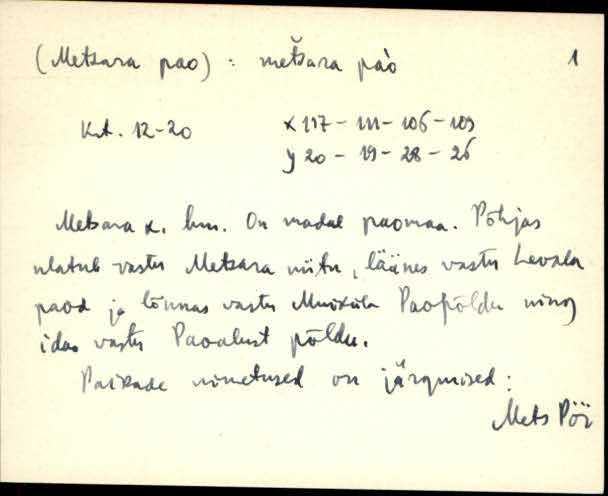 (Metsara pao) : metšara pào 1
Krt. 12-20 x 117 - 111 - 106 - 109
y 20 - 19 - 28 - 26
Metsara k. hm. On madal paomaa. Põhjas
ulatub vastu Metsara niitu, läänes vastu Levala
paod ja lõunas vastu Muiküla Paopõldu ning
idas vastu Paoalust põldu.
Paikade nimetused on järgmised:
Mets Pöi